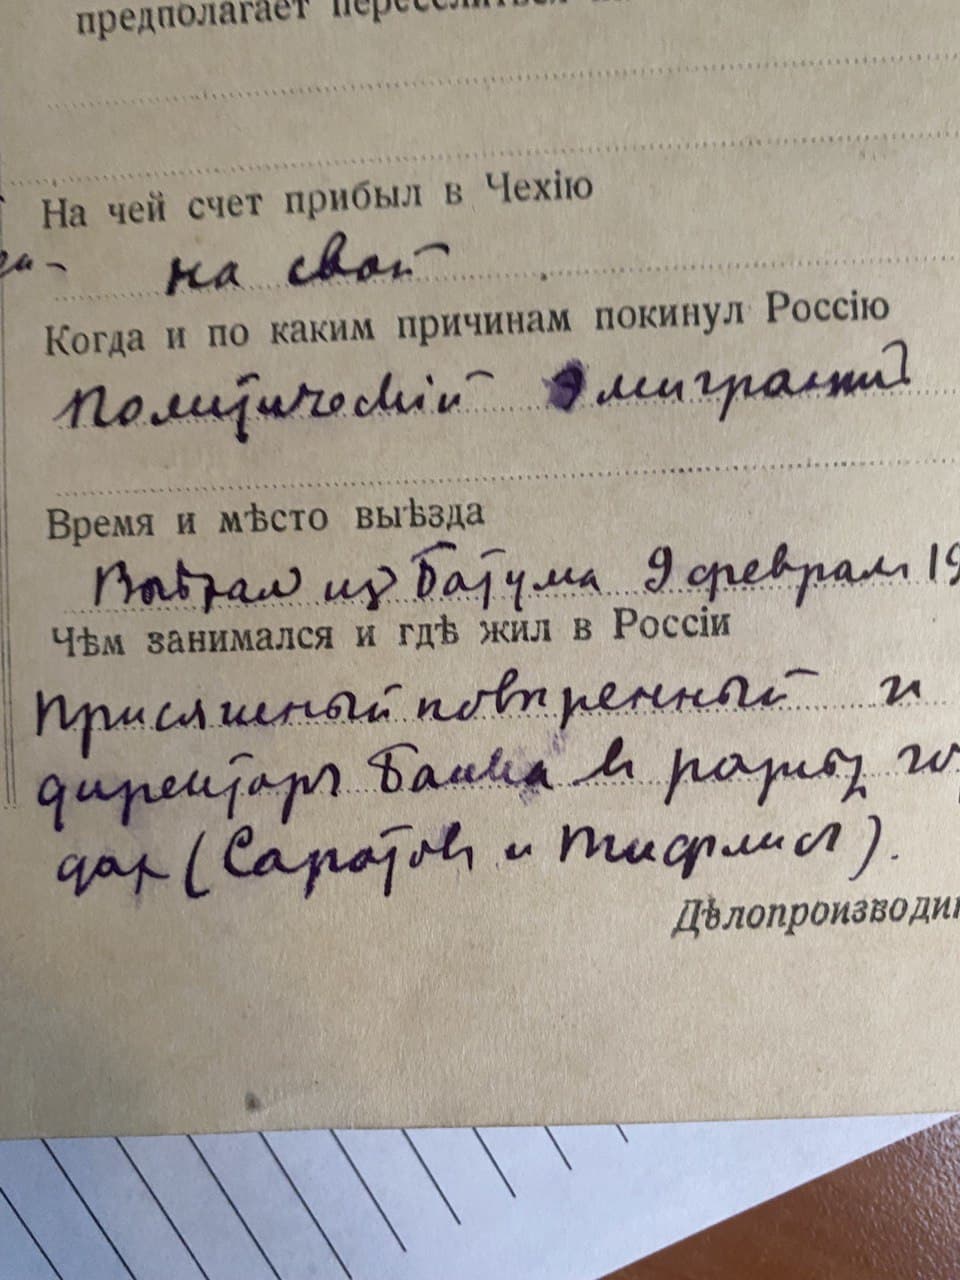 предполагает переселиться
На чей счет прибыл в Чехію
на свой
Когда и по каким причинам покинул Россію
Политическій эмигрант
Время и мѣсто выѣзда
Выѣхал из Батума 9 февраля 19
Чѣм занимался и гдѣ жил в Россіи
Присяжный повѣренный и
директоръ банка в разных го
дах (Саратов и Тифлис).
Дѣлопроизводи